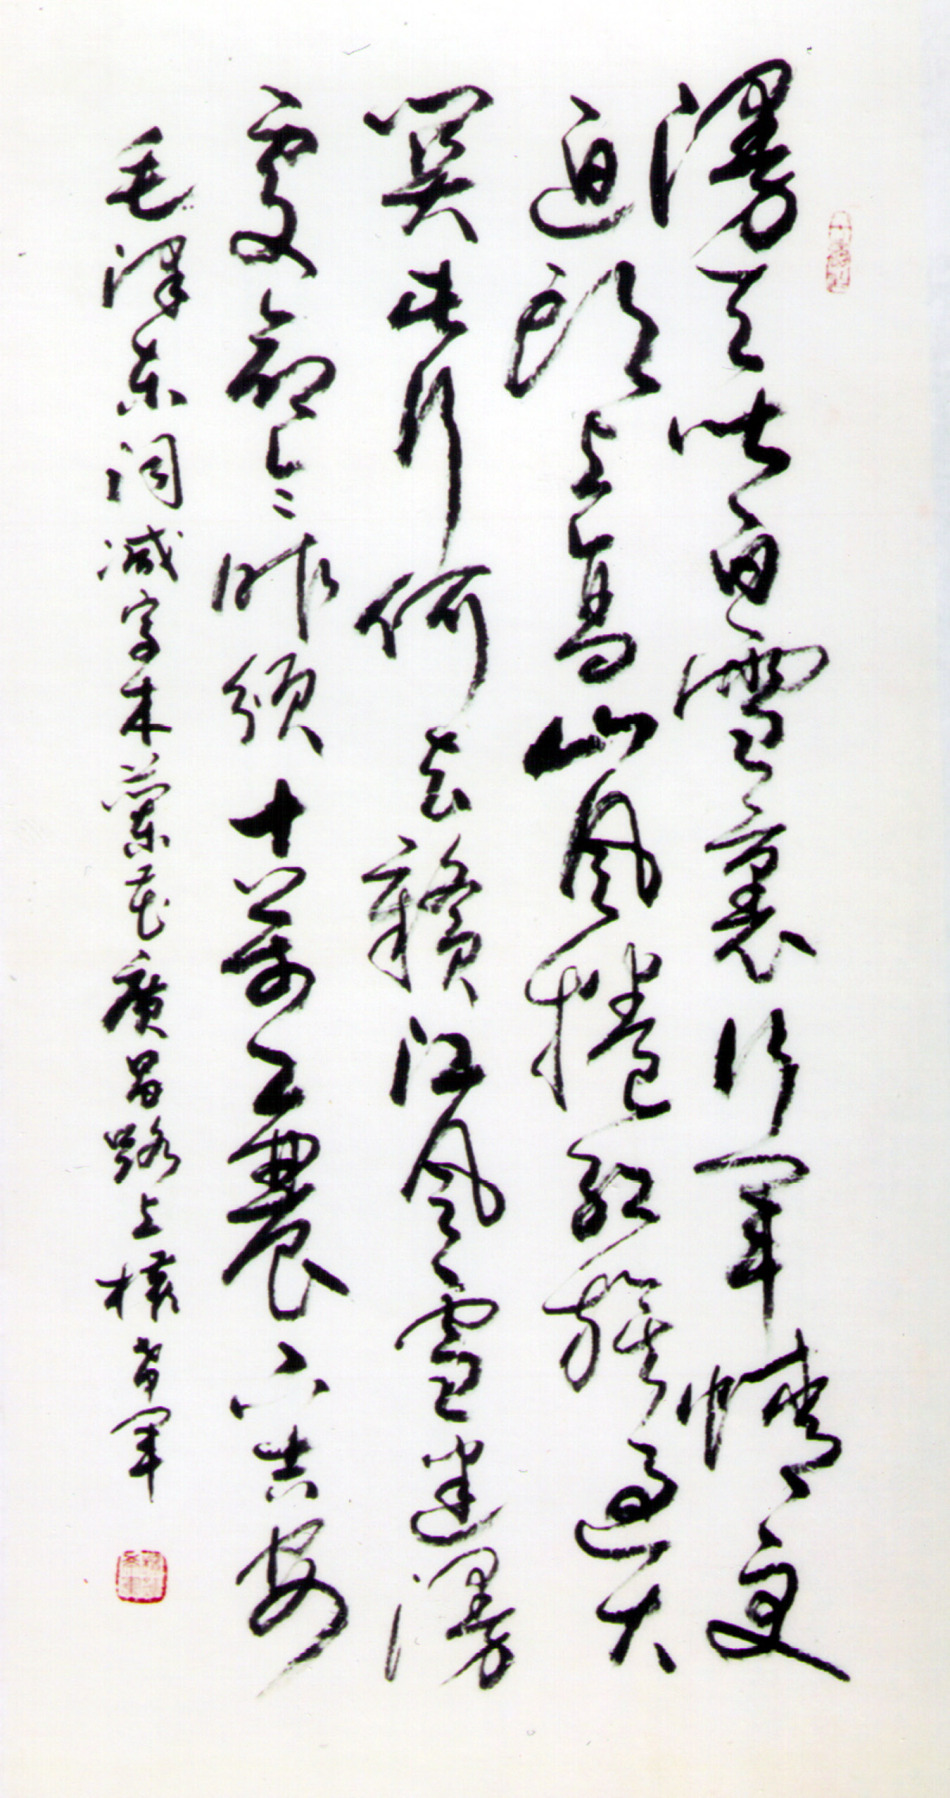 漫天皆白雪裏行軍情更
迫頭上高山風捲紅旗過大
関此行何去贛江風雪迷漫
處命令昨頒十萬工農下吉安
毛澤東詞減字木蘭花廣昌路上